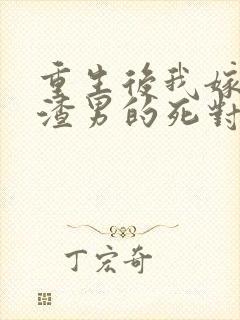 重生後我嫁
渣男的死對
丁宏奇